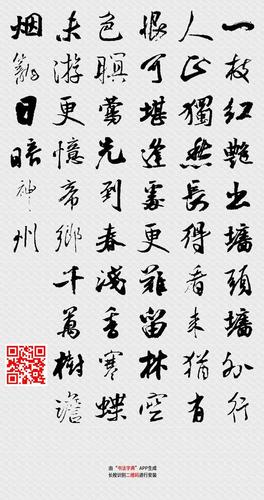 一枝紅艷出墻頭墻外行
人正獨愁長得看來猶有
恨可堪逢處更難留林空
色暝鶯先到春淺香寒蝶
未游更憶帝鄉千萬樹澹
烟籠日暗神州
由“书法字典”APP生成
长按识别二维码进行安装